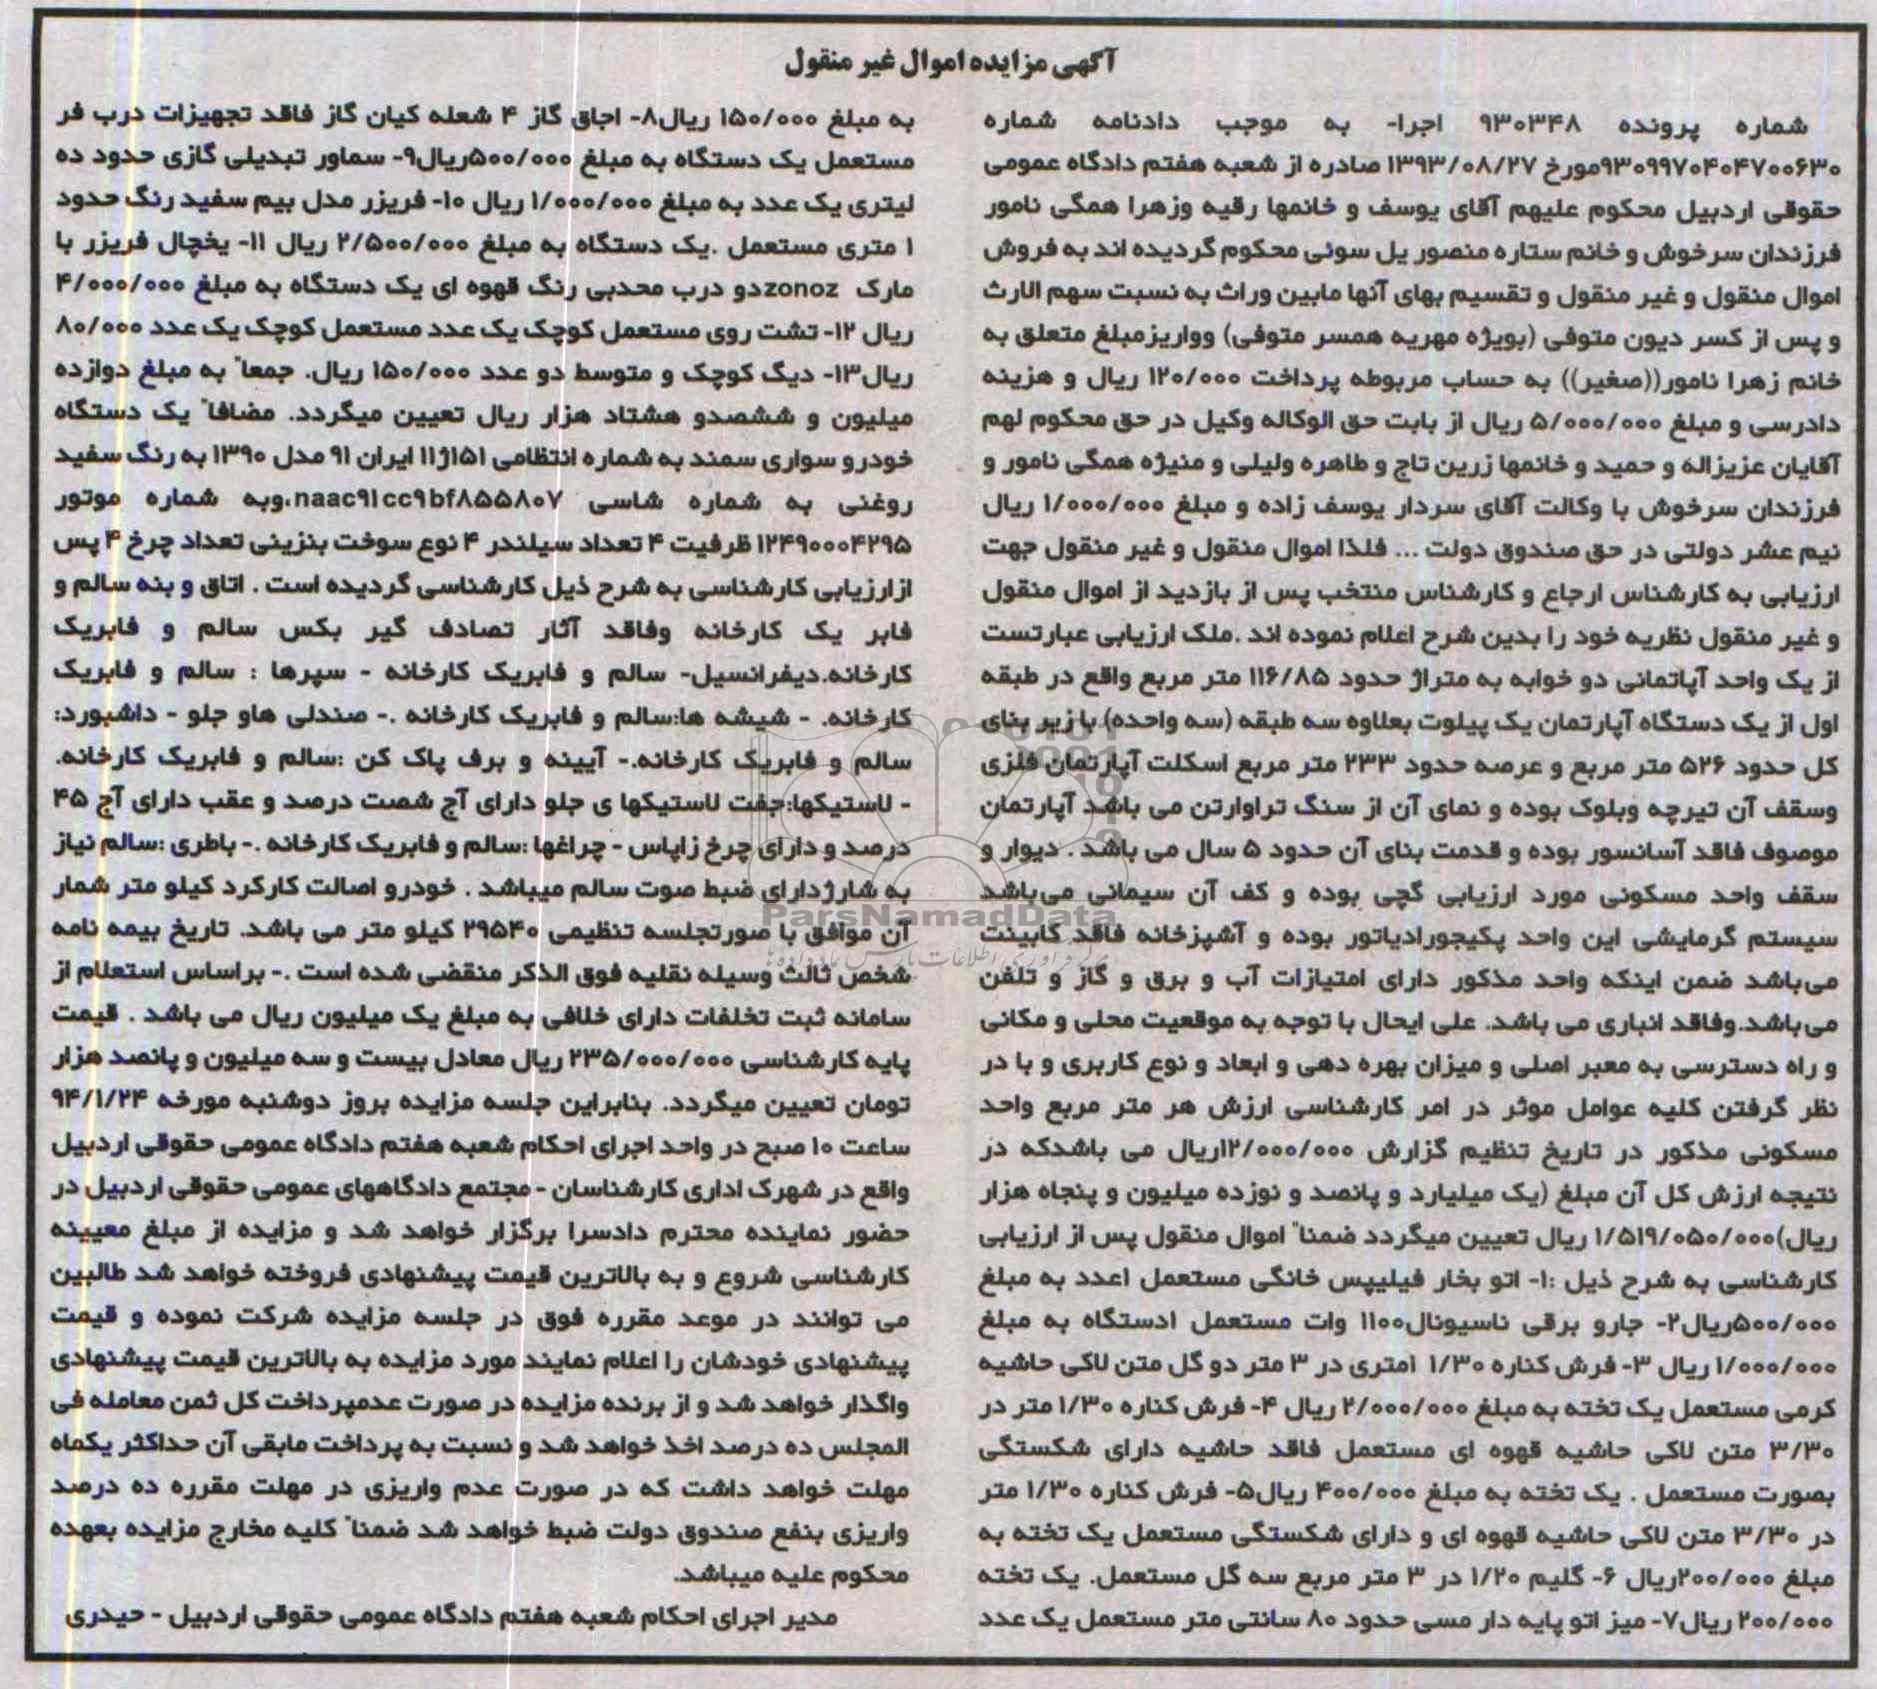 آگهی مزایده اموال غیر منقول
شماره پرونده ۹۳۰۳۴۸ اجرا- به موجب دادنامه شماره
۹۳۰۹۹۷۰۴۰۴۷۰۰۶۳۰مورخ ۱۳۹۳/۰۸/۲۷ صادره از شعبه هفتم دادگاه عمومی
حقوقی اردبیل محکوم علیهم آقای یوسف و خانمها رقیه وزهرا همگی نامور
فرزندان سرخوش و خانم ستاره منصور یل سوئی محکوم گردیده اند به فروش
اموال منقول و غیر منقول و تقسیم بهای آنها مابین وراث به نسبت سهم الارث
و پس از کسر دیون متوفی (بویژه مهریه همسر متوفی) وواریزمبلغ متعلق به
خانم زهرا نامور((صغیر)) به حساب مربوطه پرداخت ۱۲۰/۰۰۰ ریال و هزینه
دادرسی و مبلغ ۵/۰۰۰/۰۰۰ ریال از بابت حق الوکاله وکیل در حق محکوم لهم
آقایان عزیزاله و حمید و خانمها زرین تاج و طاهره ولیلی و منیژه همگی نامور و
فرزندان سرخوش با وکالت آقای سردار یوسف زاده و مبلغ ۱/۰۰۰/۰۰۰ ریال
نیم عشر دولتی در حق صندوق دولت ... فلذا اموال منقول و غیر منقول جهت
ارزیابی به کارشناس ارجاع و کارشناس منتخب پس از بازدید از اموال منقول
و غیر منقول نظریه خود را بدین شرح اعلام نموده اند .ملک ارزیابی عبارتست
از یک واحد آپاتمانی دو خوابه به متراژ حدود ۱۱۶/۸۵ متر مربع واقع در طبقه
اول از یک دستگاه آپارتمان یک پیلوت بعلاوه سه طبقه (سه واحده) با زیر بنای
کل حدود ۵۲۶ متر مربع و عرصه حدود ۲۳۳ متر مربع اسکلت آپارتمان فلزی
وسقف آن تیرچه وبلوک بوده و نمای آن از سنگ تراوارتن می باشد آپارتمان
موصوف فاقد آسانسور بوده و قدمت بنای آن حدود ۵ سال می باشد . دیوار و
سقف واحد مسکونی مورد ارزیابی گچی بوده و کف آن سیمانی می‌باشد
سیستم گرمایشی این واحد پکیجورادیاتور بوده و آشپزخانه فاقد کابینت
می‌باشد ضمن اینکه واحد مذکور دارای امتیازات آب و برق و گاز و تلفن
می‌باشد.وفاقد انباری می باشد. علی ایحال با توجه به موقعیت محلی و مکانی
و راه دسترسی به معبر اصلی و میزان بهره دهی و ابعاد و نوع کاربری و با در
نظر گرفتن کلیه عوامل موثر در امر کارشناسی ارزش هر متر مربع واحد
مسکونی مذکور در تاریخ تنظیم گزارش ۱۲/۰۰۰/۰۰۰ریال می باشدکه در
نتیجه ارزش کل آن مبلغ (یک میلیارد و پانصد و نوزده میلیون و پنجاه هزار
ریال)۱/۵۱۹/۰۵۰/۰۰۰ ریال تعیین میگردد ضمنا" اموال منقول پس از ارزیابی
کارشناسی به شرح ذیل :۱- اتو بخار فیلیپس خانگی مستعمل ۱عدد به مبلغ
۵۰۰/۰۰۰ریال۲- جارو برقی ناسیونال۱۱۰۰ وات مستعمل ۱دستگاه به مبلغ
۱/۰۰۰/۰۰۰ ریال ۳- فرش کناره ۱/۳۰ امتری در ۳ متر دو گل متن لاکی حاشیه
کرمی مستعمل یک تخته به مبلغ ۲/۰۰۰/۰۰۰ ریال ۴- فرش کناره ۱/۳۰ متر در
۳/۳۰ متن لاکی حاشیه قهوه ای مستعمل فاقد حاشیه دارای شکستگی
بصورت مستعمل . یک تخته به مبلغ ۴۰۰/۰۰۰ ریال۵- فرش کناره ۱/۳۰ متر
در ۳/۳۰ متن لاکی حاشیه قهوه ای و دارای شکستگی مستعمل یک تخته به
مبلغ ۲۰۰/۰۰۰ریال ۶- گلیم ۱/۲۰ در ۳ متر مربع سه گل مستعمل. یک تخته
۲۰۰/۰۰۰ ریال۷- میز اتو پایه دار مسی حدود ۸۰ سانتی متر مستعمل یک عدد
به مبلغ ۱۵۰/۰۰۰ ریال۸- اجاق گاز ۴ شعله کیان گاز فاقد تجهیزات درب فر
مستعمل یک دستگاه به مبلغ ۵۰۰/۰۰۰ریال۹- سماور تبدیلی گازی حدود ده
لیتری یک عدد به مبلغ ۱/۰۰۰/۰۰۰ ریال ۱۰- فریزر مدل بیم سفید رنگ حدود
۱ متری مستعمل .یک دستگاه به مبلغ ۲/۵۰۰/۰۰۰ ریال ۱۱- یخچال فریزر با
مارک zonozدو درب محدبی رنگ قهوه ای یک دستگاه به مبلغ ۴/۰۰۰/۰۰۰
ریال ۱۲- تشت روی مستعمل کوچک یک عدد مستعمل کوچک یک عدد ۸۰/۰۰۰
ریال۱۳- دیگ کوچک و متوسط دو عدد ۱۵۰/۰۰۰ ریال. جمعا" به مبلغ دوازده
میلیون و ششصدو هشتاد هزار ریال تعیین میگردد. مضافا" یک دستگاه
خودرو سواری سمند به شماره انتظامی ۱۵۱ژ۱۱ ایران ۹۱ مدل ۱۳۹۰ به رنگ سفید
روغنی به شماره شاسی naac۹۱cc۹bf۸۵۵۸۰۷،وبه شماره موتور
۱۲۴۹۰۰۰۴۲۹۵ ظرفیت ۴ تعداد سیلندر ۴ نوع سوخت بنزینی تعداد چرخ ۴ پس
ازارزیابی کارشناسی به شرح ذیل کارشناسی گردیده است . اتاق و بنه سالم و
فابر یک کارخانه وفاقد آثار تصادف گیر بکس سالم و فابریک
کارخانه.دیفرانسیل- سالم و فابریک کارخانه - سپرها : سالم و فابریک
کارخانه. - شیشه ها:سالم و فابریک کارخانه .- صندلی هاو جلو - داشبورد:
سالم و فابریک کارخانه.- آیینه و برف پاک کن :سالم و فابریک کارخانه.
- لاستیکها:جفت لاستیکها ی جلو دارای آج شصت درصد و عقب دارای آج ۴۵
درصد و دارای چرخ زاپاس - چراغها :سالم و فابریک کارخانه .- باطری :سالم نیاز
به شارژدارای ضبط صوت سالم میباشد . خودرو اصالت کارکرد کیلو متر شمار
آن موافق با صورتجلسه تنظیمی ۲۹۵۴۰ کیلو متر می باشد. تاریخ بیمه نامه
شخص ثالث وسیله نقلیه فوق الذکر منقضی شده است .- براساس استعلام از
سامانه ثبت تخلفات دارای خلافی به مبلغ یک میلیون ریال می باشد . قیمت
پایه کارشناسی ۲۳۵/۰۰۰/۰۰۰ ریال معادل بیست و سه میلیون و پانصد هزار
تومان تعیین میگردد. بنابراین جلسه مزایده بروز دوشنبه مورخه ۹۴/۱/۲۴
ساعت ۱۰ صبح در واحد اجرای احکام شعبه هفتم دادگاه عمومی حقوقی اردبیل
واقع در شهرک اداری کارشناسان - مجتمع دادگاههای عمومی حقوقی اردبیل در
حضور نماینده محترم دادسرا برگزار خواهد شد و مزایده از مبلغ معیینه
کارشناسی شروع و به بالاترین قیمت پیشنهادی فروخته خواهد شد طالبین
می توانند در موعد مقرره فوق در جلسه مزایده شرکت نموده و قیمت
پیشنهادی خودشان را اعلام نمایند مورد مزایده به بالاترین قیمت پیشنهادی
واگذار خواهد شد و از برنده مزایده در صورت عدمپرداخت کل ثمن معامله فی
المجلس ده درصد اخذ خواهد شد و نسبت به پرداخت مابقی آن حداکثر یکماه
مهلت خواهد داشت که در صورت عدم واریزی در مهلت مقرره ده درصد
واریزی بنفع صندوق دولت ضبط خواهد شد ضمنا" کلیه مخارج مزایده بعهده
محکوم علیه میباشد.
مدیر اجرای احکام شعبه هفتم دادگاه عمومی حقوقی اردبیل - حیدری
ParsNamadData